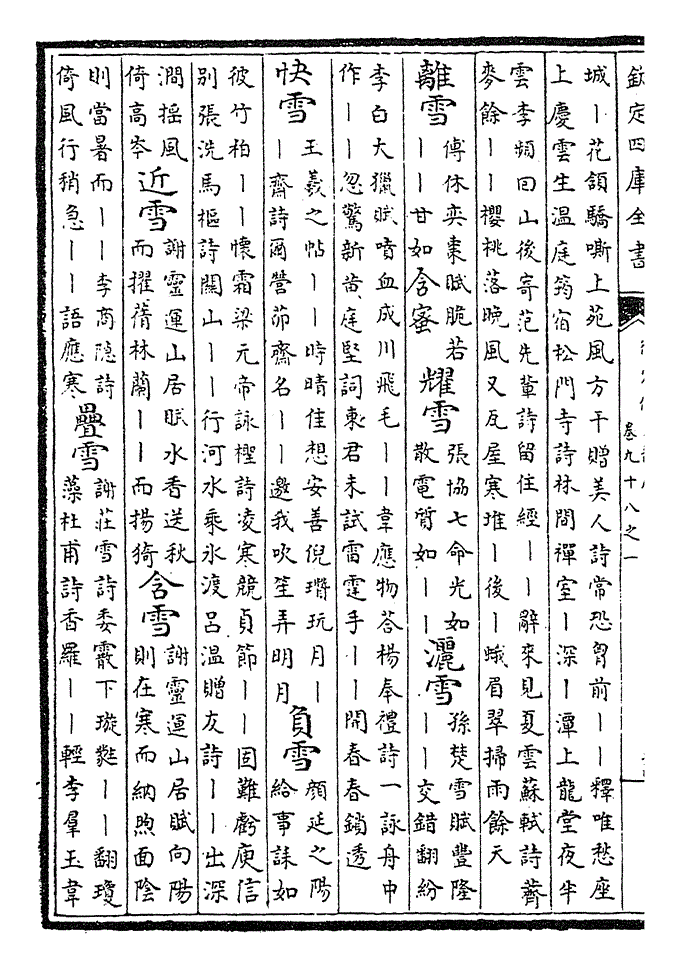 欽定四庫全書
卷九十八之一
城丨花頷驕嘶上苑風方干贈美人詩常恐胷前丨丨釋唯愁座
上慶雲生溫庭筠宿松門寺詩林間禪室丨深丨潭上龍堂夜半
雲李頻回山後寄范先輩詩留住經丨丨辭來見夏雲蘇軾詩薺
麥餘丨丨櫻桃落晚風又瓦屋寒堆丨後丨蛾眉翠掃雨餘天
離雪
傅休奕棗賦脆若
丨丨甘如含蜜
耀雪
張協七命光如
散電質如丨丨
灑雪
孫楚雪賦豐隆
丨丨交錯翻紛
李白大獵賦噴血成川飛毛丨丨韋應物答楊奉禮詩一詠舟中
作丨丨忽驚新黄庭堅詞東君未試雷霆手丨丨開春春鎖透
快雪
王羲之帖丨丨時晴佳想安善倪瓚玩月丨
丨齋詩爾營茆齋名丨丨邀我吹笙弄明月
負雪
顔延之陽
給事誄如
彼竹柏丨丨懷霜梁元帝詠檉詩凌寒競貞節丨丨固難虧庾信
別張洗馬樞詩關山丨丨行河水乘氷渡呂溫贈友詩丨丨出深
澗摇風
倚高岑
近雪
謝靈運山居賦水香送秋
而擢蒨林蘭丨丨而揚猗
含雪
謝靈運山居賦向陽
則在寒而納煦面陰
則當暑而丨丨李商隐詩
倚風行稍急丨丨語應寒
疊雪
謝莊雪詩委霰下璇蕤丨丨翻瓊
藻杜甫詩香羅丨丨輕李羣玉葦